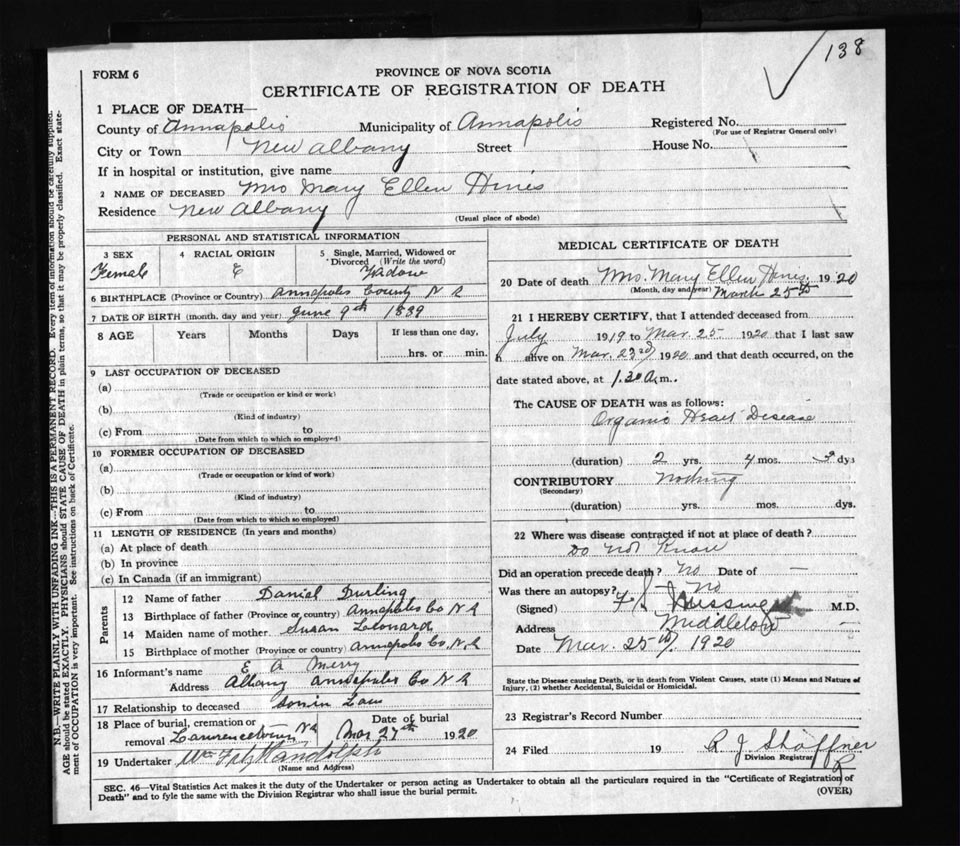 138
FORM 6
PROVINCE OF NOVA SCOTIA
CERTIFICATE OF REGISTRATION OF DEATH
1 PLACE OF DEATH—
County of Annapolis Municipality of Annapolis Registered No.
(For use of Registrar General only)
City or Town New Albany Street House No.
If in hospital or institution, give name
2 NAME OF DECEASED Mrs Mary Ellen Hines
Residence New Albany
(Usual place of abode)
PERSONAL AND STATISTICAL INFORMATION
3 SEX 4 RACIAL ORIGIN 5 Single, Married, Widowed or Divorced (Write the word)
Female E Widow
6 BIRTHPLACE (Province or Country) Annapolis County N S
7 DATE OF BIRTH (month, day and year) June 9th 1839
8 AGE Years Months Days If less than one day,
hrs. or min.
9 LAST OCCUPATION OF DECEASED
(a)
(Trade or occupation or kind or work)
(b)
(Kind of industry)
(c) From to
(Date from which to which so employed)
10 FORMER OCCUPATION OF DECEASED
(a)
(Trade or occupation or kind of work)
(b)
(Kind of industry)
(c) From to
(Date from which to which so employed)
11 LENGTH OF RESIDENCE (In years and months)
(a) At place of death
(b) In province
(c) In Canada (if an immigrant)
Parents
12 Name of father Daniel Durling
13 Birthplace of father (Province or country) Annapolis Co N S
14 Maiden name of mother Susan Leonard
15 Birthplace of mother (Province or country) Annapolis Co, N, S
16 Informant's name E A Merry
Address Albany Annapolis Co N S
17 Relationship to deceased Son in Law
18 Place of burial, cremation or removal Lawrencetown N S Date of burial Mar 27th 1920
19 Undertaker Wm FitzRandolph
(Name and Address)
MEDICAL CERTIFICATE OF DEATH
20 Date of death Mrs. Mary Ellen Hines. 1920
(Month, day and year) March 25th
21 I HEREBY CERTIFY, that I attended deceased from
July 1919 to Mar. 25 1920 that I last saw
h alive on Mar. 23rd 1920 and that death occurred, on the
date stated above, at 1.30 a.m.
The CAUSE OF DEATH was as follows:
Organic Heart Disease
(duration) 2 yrs. 4 mos. dys
CONTRIBUTORY Nothing
(Secondary)
(duration) yrs. mos. dys.
22 Where was disease contracted if not at place of death?
Do not Know
Did an operation precede death? No Date of —
Was there an autopsy? No
(Signed) F. S. M.D.
Address Middleton
Date Mar. 25th 1920
State the Disease causing Death, or in death from Violent Causes, state (1) Means and Nature of
Injury, (2) whether Accidental, Suicidal or Homicidal.
23 Registrar's Record Number
24 Filed 19 R. J. Shaffner
Division Registrar
SEC. 46—Vital Statistics Act makes it the duty of the Undertaker or person acting as Undertaker to obtain all the particulars required in the "Certificate of Registration of
Death" and to fyle the same with the Division Registrar who shall issue the burial permit.
(OVER)
N.B.—WRITE PLAINLY WITH UNFADING INK—THIS IS A PERMANENT RECORD. Every item of information should be carefully supplied.
AGE should be stated EXACTLY. PHYSICIANS should STATE CAUSE OF DEATH in plain terms, so that it may be properly classified. Exact state-
ment of OCCUPATION is very important. See instructions on back of Certificate.